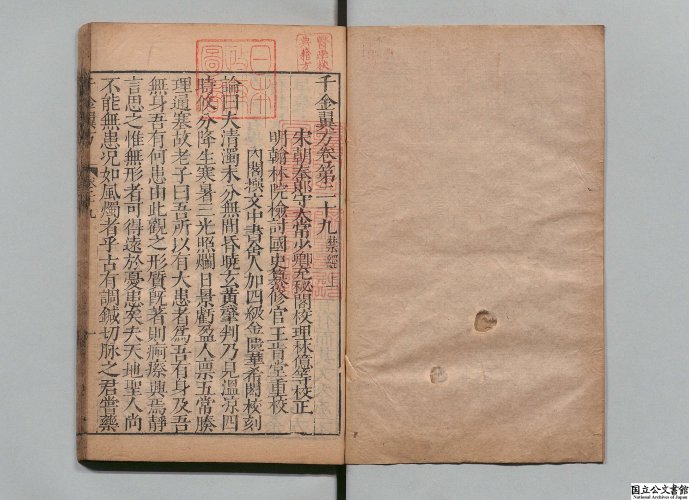 千金翼方卷第二十九 禁經上
宋朝奉郎守太常少卿充秘閣校理林億等校正
明翰林院檢討國史纂修官王肯堂重校
內閣撰文中書舍人加四級金匱華希閎校刻
論曰大清濁未分無間昏曉玄黃肇判乃見溫凉四
時攸分降生寒暑三光照爛日景虧盈人禀五常腠
理通塞故老子曰吾所以有大患者為吾有身及吾
無身吾有何患由此觀之形質既著則痾瘵興焉靜
言思之惟無形者可得遠於憂患矣夫天地聖人尚
不能無患况如風燭者乎古有調鍼切脉之君嘗藥
千金翼方 卷二十九 一
醫學校
典籍方
日本
政府
圖書
国立公文書館
National Archives of Japan